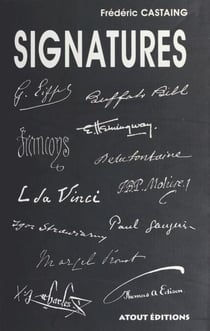 Frédéric CASTAING
SIGNATURES
G. Eiffel
Buffalo Bill
Françoys
E. Hemingway.
De la fontaine
L da Vinci
J.B.P. Moliere
Igor Strawinsky
Paul Gauguin
Marcel Proust
Charles
Thomas A Edison
ATOUT EDITIONS